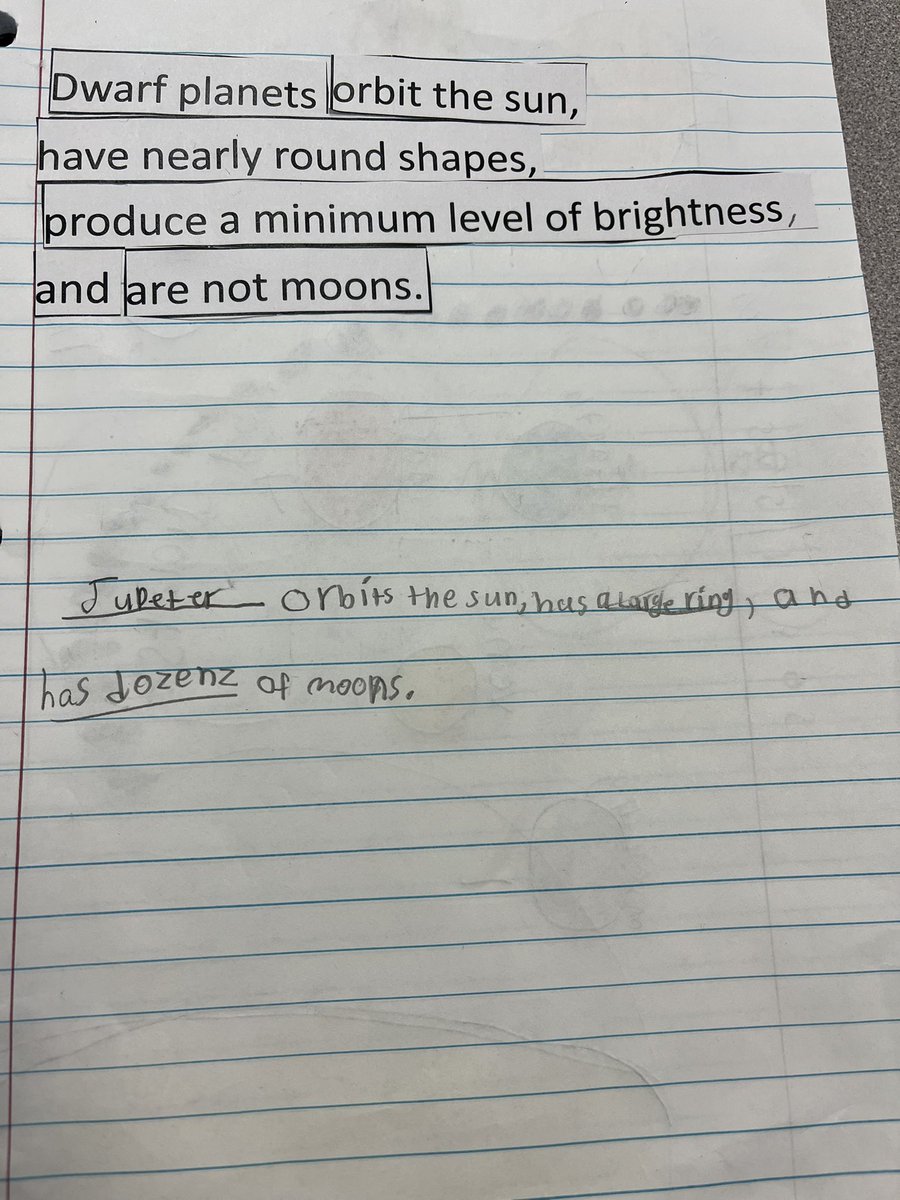 Dwarf planets orbit the sun,
have nearly round shapes,
produce a minimum level of brightness,
and are not moons.
Jupeter orbits the sun, has a large ring, and
has dozenz of moons.